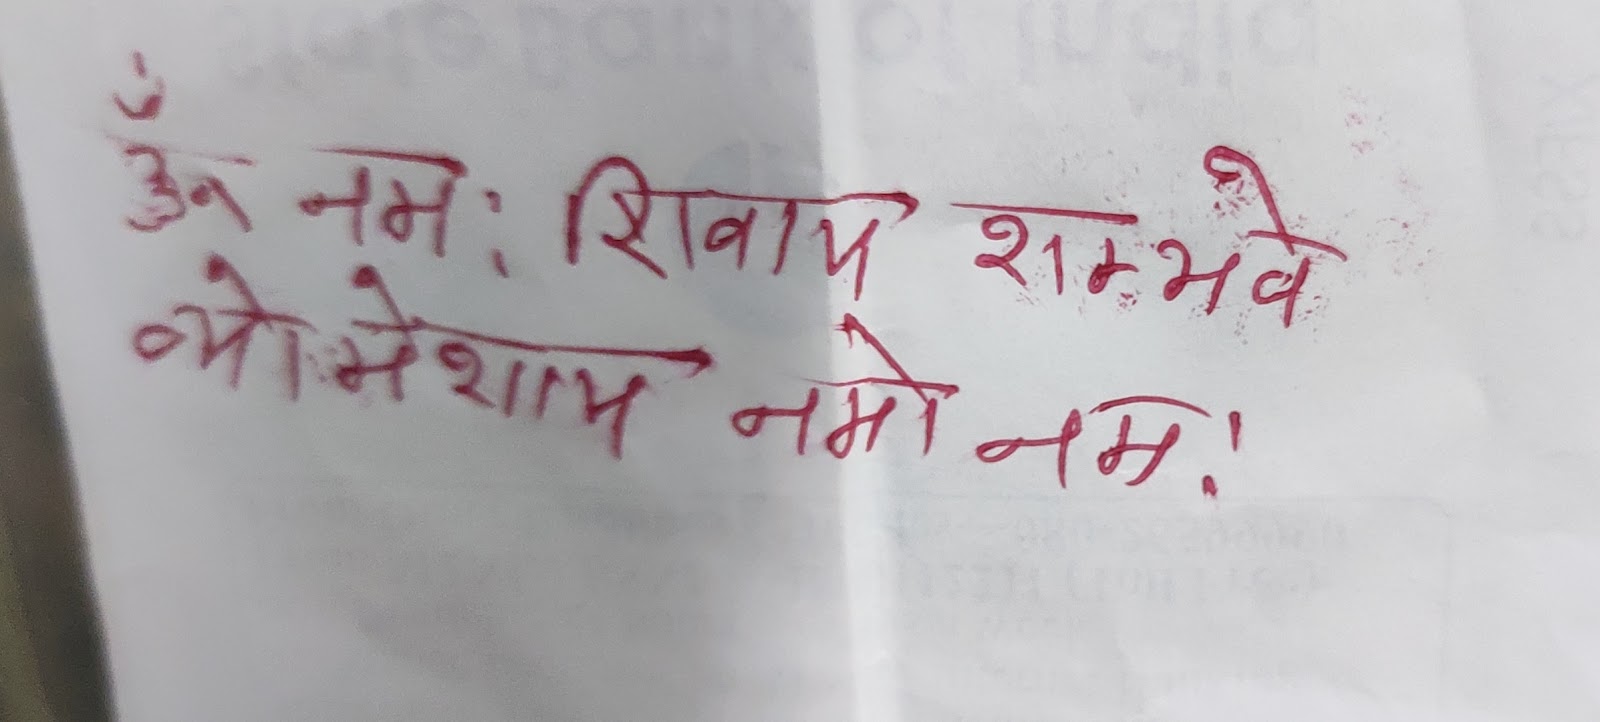 ॐ नम: शिवाय शम्भवे
व्योमेशाय नमो नम: